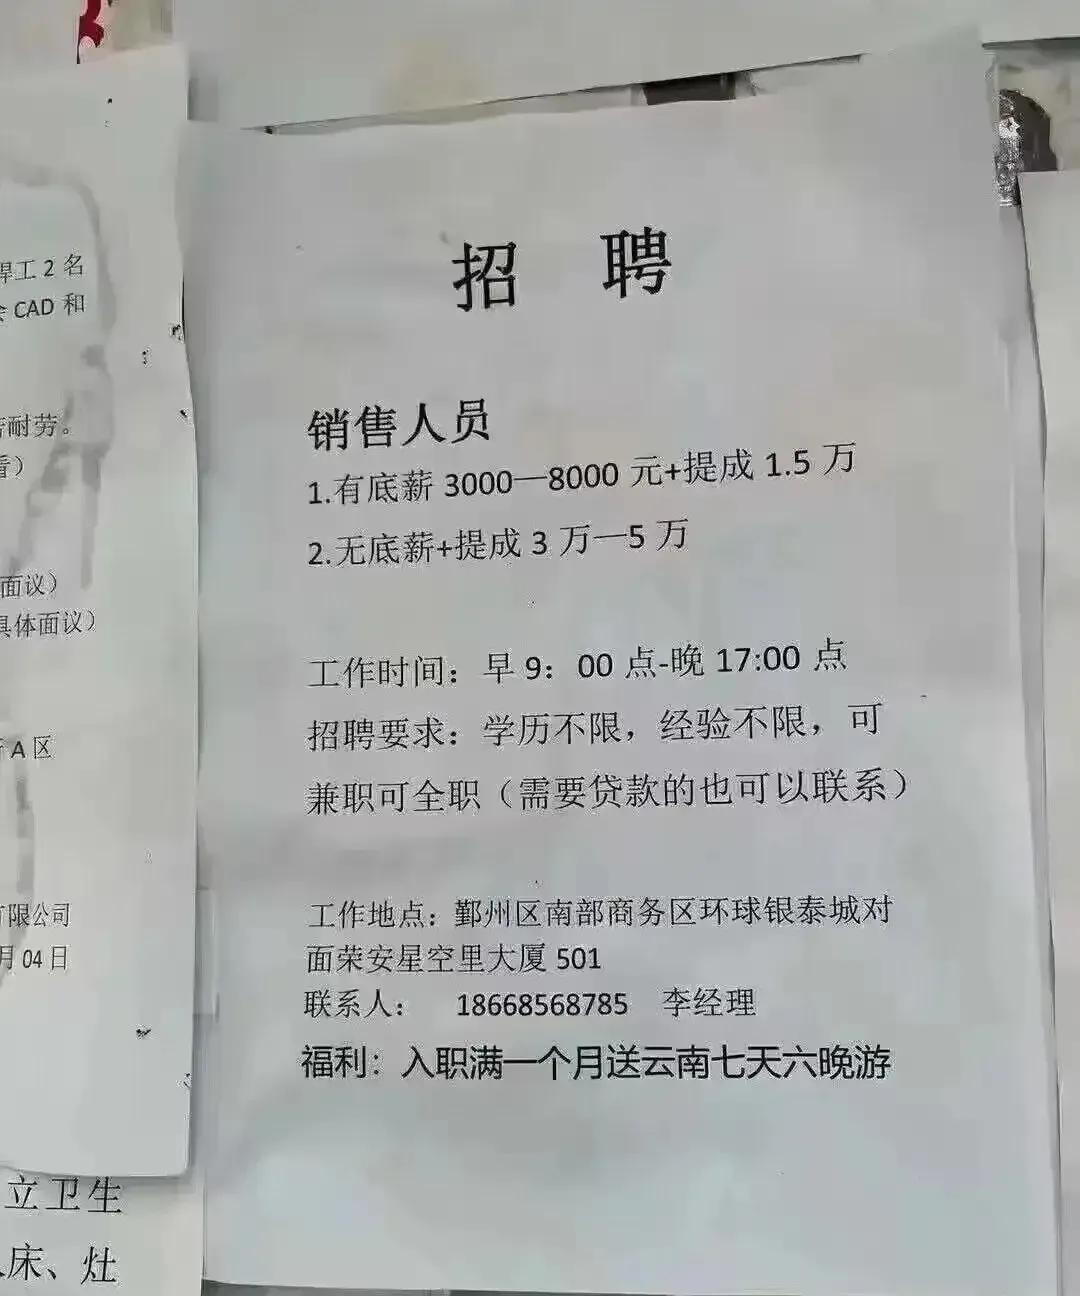 焊工 2 名
会 CAD 和
苦耐劳。
面议）
具体面议）
A 区
有限公司
月 04 日
立卫生
床、灶
招 聘
销售人员
1.有底薪 3000—8000 元+提成 1.5 万
2.无底薪+提成 3 万—5 万
工作时间：早 9：00 点-晚 17:00 点
招聘要求：学历不限，经验不限，可
兼职可全职（需要贷款的也可以联系）
工作地点：鄞州区南部商务区环球银泰城对
面荣安星空里大厦 501
联系人： 18668568785 李经理
福利：入职满一个月送云南七天六晚游